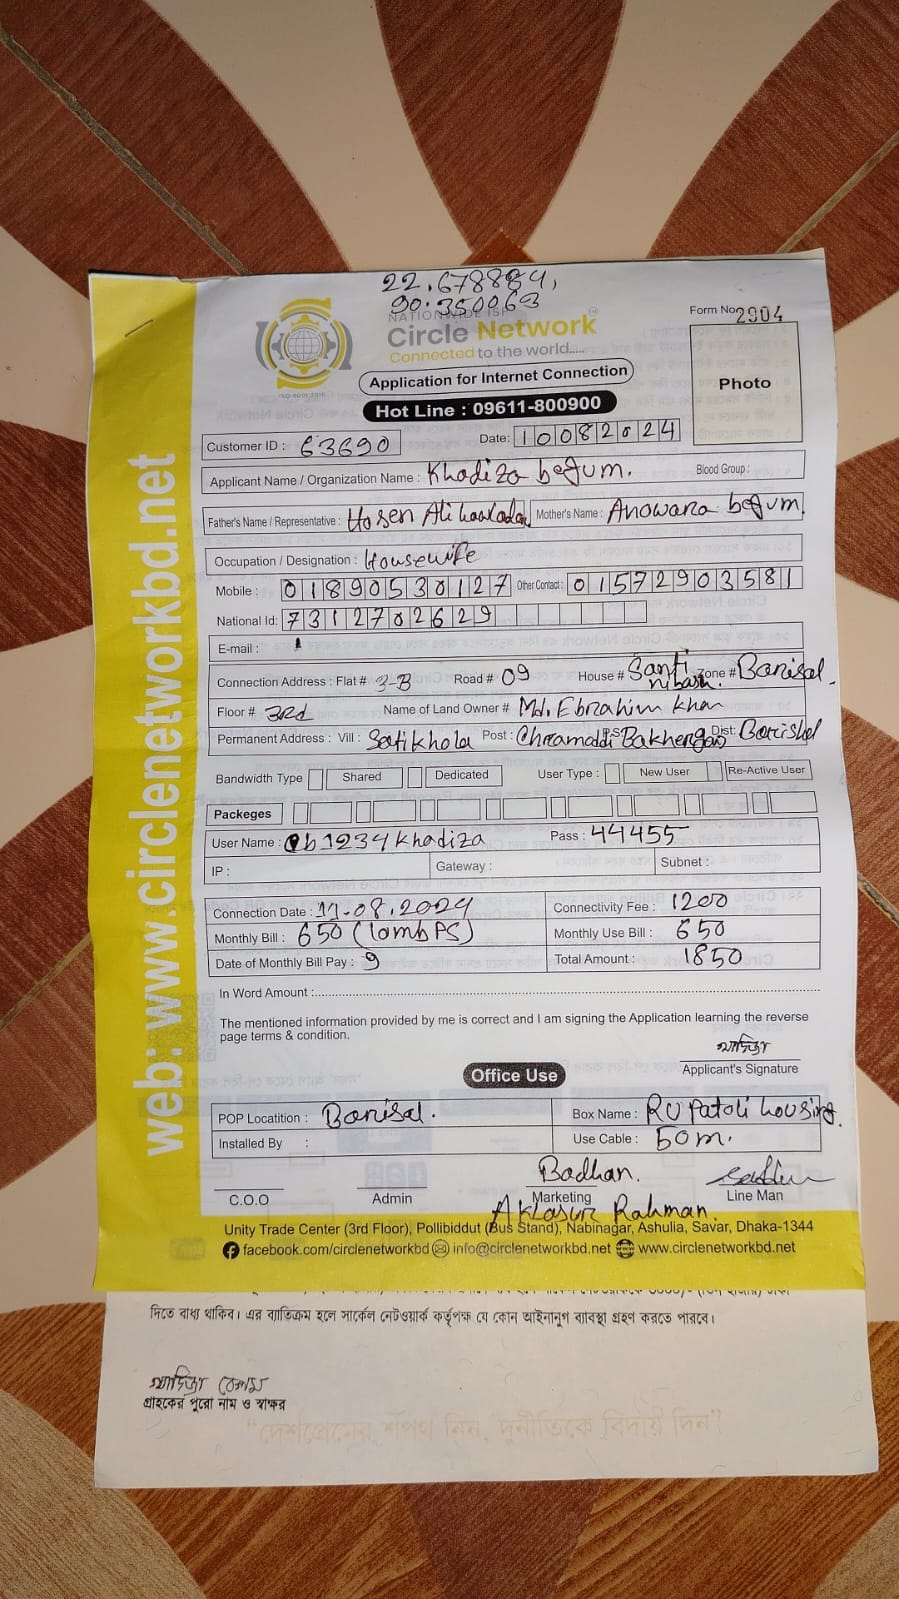 22.678884,
90.350063
NATIONWIDE ISP
Circle Network
Connected to the world.....
ISO 9001:2015
Form No 2904
Photo
Application for Internet Connection
Hot Line : 09611-800900
Customer ID : 63690
Date: 10082024
Applicant Name / Organization Name : Khadiza begum. Blood Group :
Father's Name / Representative : Hosen Ali Mother's Name : Anowara begum.
Occupation / Designation : Housewife
Mobile : 01890530127 Other Contact : 01572903581
National Id: 7312702629
E-mail :
Connection Address : Flat # 3-B Road # 09 House # Santi nibash. Zone # Barisal.
Floor # 3rd Name of Land Owner # Md. Ebrahim khan
Permanent Address : Vill : Satikhola Post : PS: Dist: Barishal
Bandwidth Type Shared Dedicated User Type : New User Re-Active User
Packeges
User Name : cb1234khadiza Pass : 44455
IP : Gateway : Subnet :
Connection Date : 11-08.2024 Connectivity Fee : 1200
Monthly Bill : 650 (10mbPS) Monthly Use Bill : 650
Date of Monthly Bill Pay : 9 Total Amount : 1850
In Word Amount :
The mentioned information provided by me is correct and I am signing the Application learning the reverse
page terms & condition.
খাদিজা
Applicant's Signature
Office Use
POP Locatition : Barisal. Box Name : Rupatoli housing.
Installed By : Use Cable : 50m.
Badhan.
C.O.O Admin Marketing Line Man
Rahman.
Unity Trade Center (3rd Floor), Pollibiddut (Bus Stand), Nabinagar, Ashulia, Savar, Dhaka-1344
facebook.com/circlenetworkbd info@circlenetworkbd.net www.circlenetworkbd.net
web: www.circlenetworkbd.net
দিতে বাধ্য থাকিব। এর ব্যাতিক্রম হলে সার্কেল নেটওয়ার্ক কর্তৃপক্ষ যে কোন আইনানুগ ব্যাবস্থা গ্রহণ করতে পারবে।
খাদিজা বেগম
গ্রাহকের পুরো নাম ও স্বাক্ষর
"দেশপ্রেমের শপথ নিন, দুর্নীতিকে বিদায় দিন"